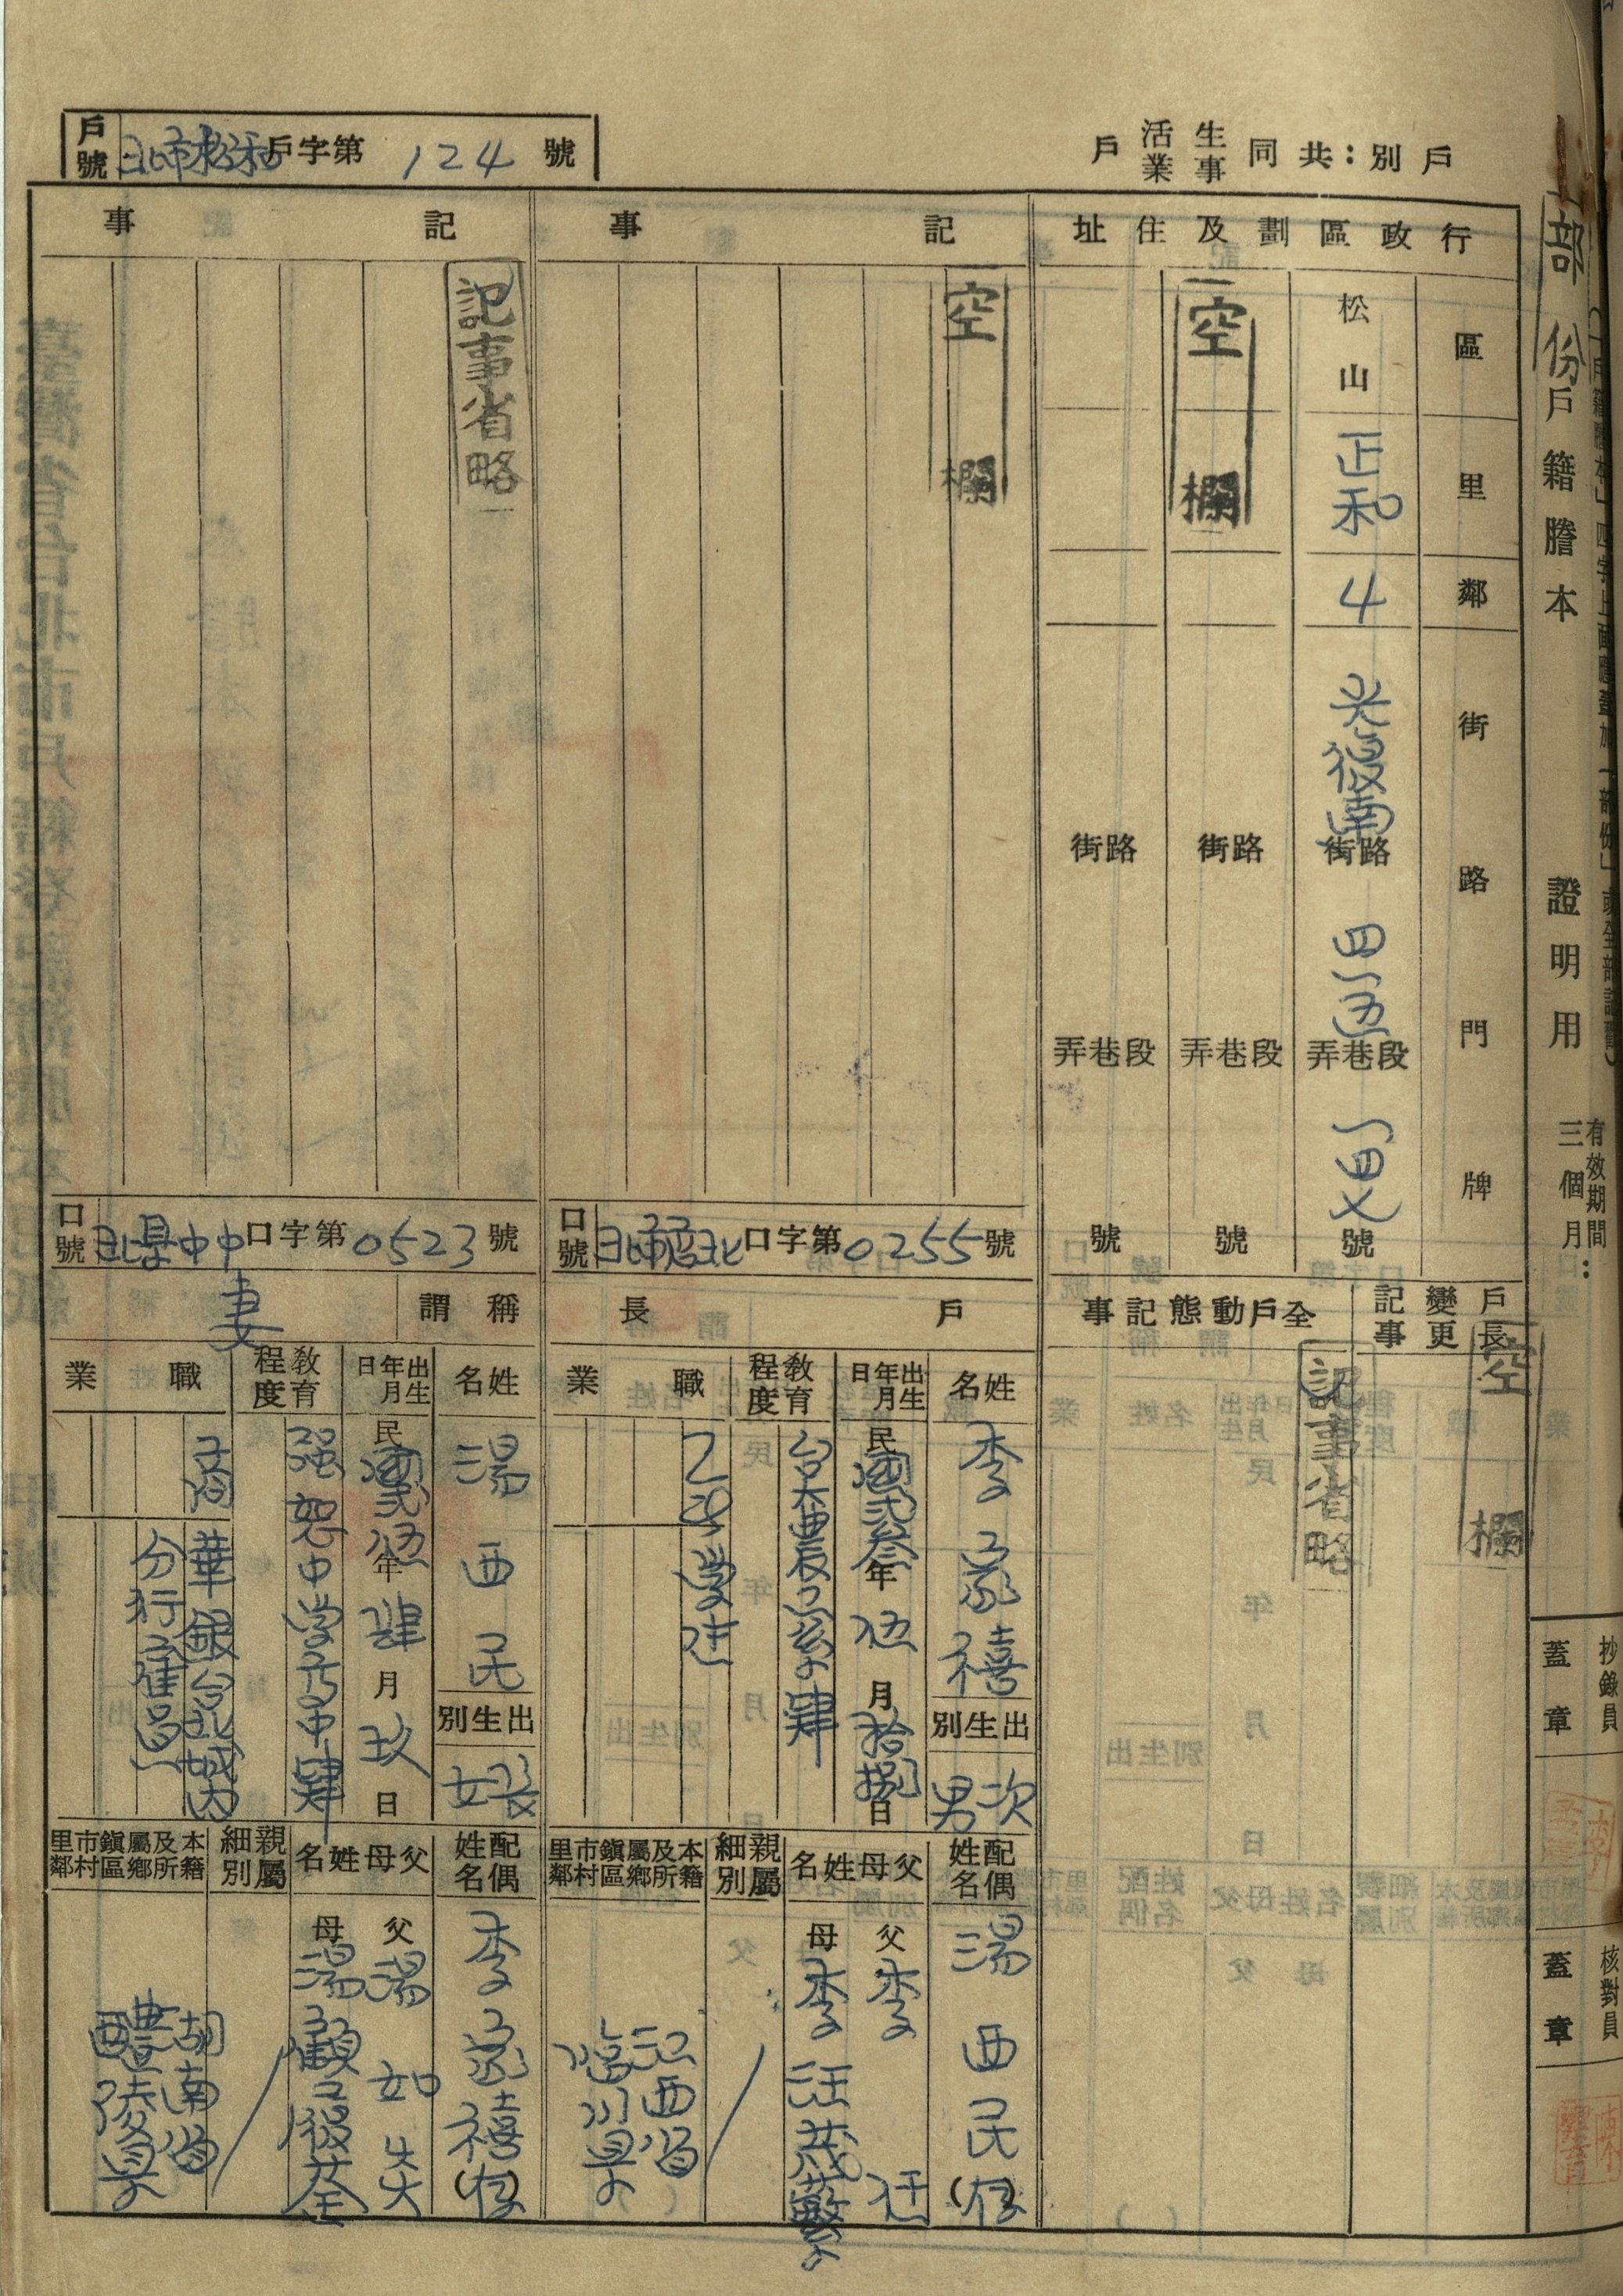 部份戶籍謄本 證明用
有效期間：
三個月
抄錄員
蓋章
核對員
蓋章
戶別：共同生活戶
事業
戶號 北市松和戶字第124號
行政區劃及住址
區 里 鄰 街 路 門 牌
松山 正和 4 光復南 街路 四一五 段巷弄 一四又 號
空欄
街路 段巷弄 號
街路 段巷弄 號
戶長變更記事
空欄
全戶動態記事
記事省略
記事
空欄
口號 北市 北口字第0255號
戶長
姓名 李家禧
出生別 次男
出生年月日 民國弍叁年伍月拾捌日
教育程度 台大農 系肄
職業
配偶姓名 湯西民(存)
父母姓名
父 李
母 李汪茂蘩
親屬細別
本籍及所屬鄉鎮區市村里鄰
江西省
臨川縣
記事
記事省略
口號 北縣中中口字第0523號
稱謂 妻
姓名 湯西民
出生別 長女
出生年月日 民國弍伍年肆月玖日
教育程度 强恕中學高中肄
職業 商
華銀台北城內
分行雇員
配偶姓名 李家禧(存)
父母姓名
父 湯如炎
母 湯顧復荃
親屬細別
本籍及所屬鄉鎮區市村里鄰
湖南省
醴陵縣